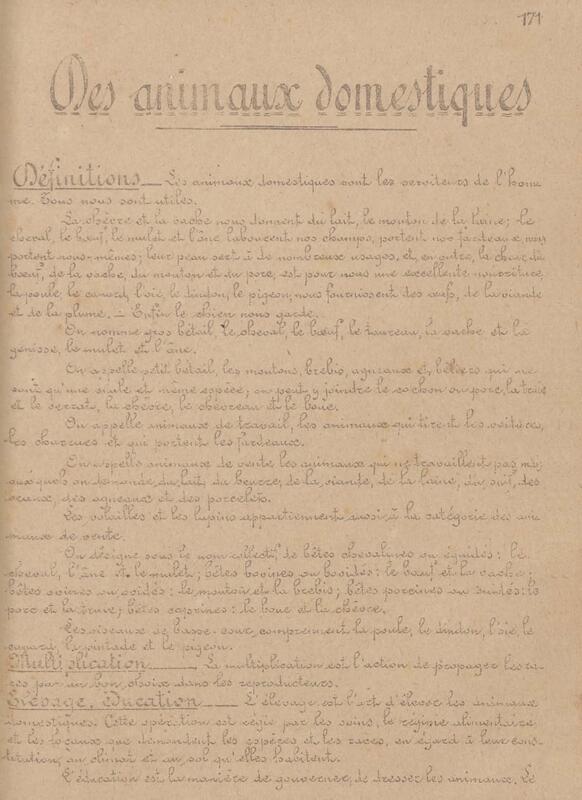 171
Des animaux domestiques
Définitions — Les animaux domestiques sont les serviteurs de l'hom
me. Tous nous sont utiles.
La chèvre et la vache nous donnent du lait, le mouton de la laine; le
cheval, le bœuf, le mulet et l'âne labourent nos champs, portent nos fardeaux, nous
portent nous-mêmes; leur peau sert à de nombreux usages, et, en outre, la chair du
bœuf, de la vache, du mouton et du porc, est pour nous une excellente nourriture
la poule, le canard, l'oie, le dindon, le pigeon, nous fournissent des œufs, de la viande
et de la plume. — Enfin le chien nous garde.
On nomme gros bétail, le cheval, le bœuf, le taureau, la vache et la
génisse, le mulet et l'âne.
On appelle petit bétail, les moutons, brebis, agneaux et, béliers qui ne
sont qu'une seule et même espèce; on peut y joindre le cochon ou porc, la truie
et le verrat, la chèvre, le chevreau et le bouc.
On appelle animaux de travail, les animaux qui tirent les voitures,
les charrues et qui portent les fardeaux.
On appelle animaux de vente les animaux qui ne travaillent pas mais
auxquels on demande du lait, du beurre, de la viande, de la laine, du suif, des
veaux, des agneaux et des porcelets.
Les volailles et les lapins appartiennent aussi à la catégorie des ani
maux de vente.
On désigne sous le nom collectif de bêtes chevalines ou équidés: le
cheval, l'âne et le mulet; bêtes bovines ou bovidés: le bœuf et la vache;
bêtes ovines ou ovidés: le mouton et la brebis; bêtes porcines ou suidés: le
porc et la truie; bêtes caprines: le bouc et la chèvre.
Les oiseaux de basse-cour comprennent la poule, le dindon, l'oie, le
canard, la pintade et le pigeon.
Multiplication — La multiplication est l'action de propager les ra-
ces par un bon choix dans les reproducteurs.
Élevage, éducation — L'élevage est l'art d'élever les animaux
domestiques. Cette opération est régie par les soins, le régime alimentaire
et les locaux que demandent les espèces et les races, eu égard à leur cons-
titution, au climat et au sol qu'elles habitent.
L'éducation est la manière de gouverner, de dresser les animaux. Le